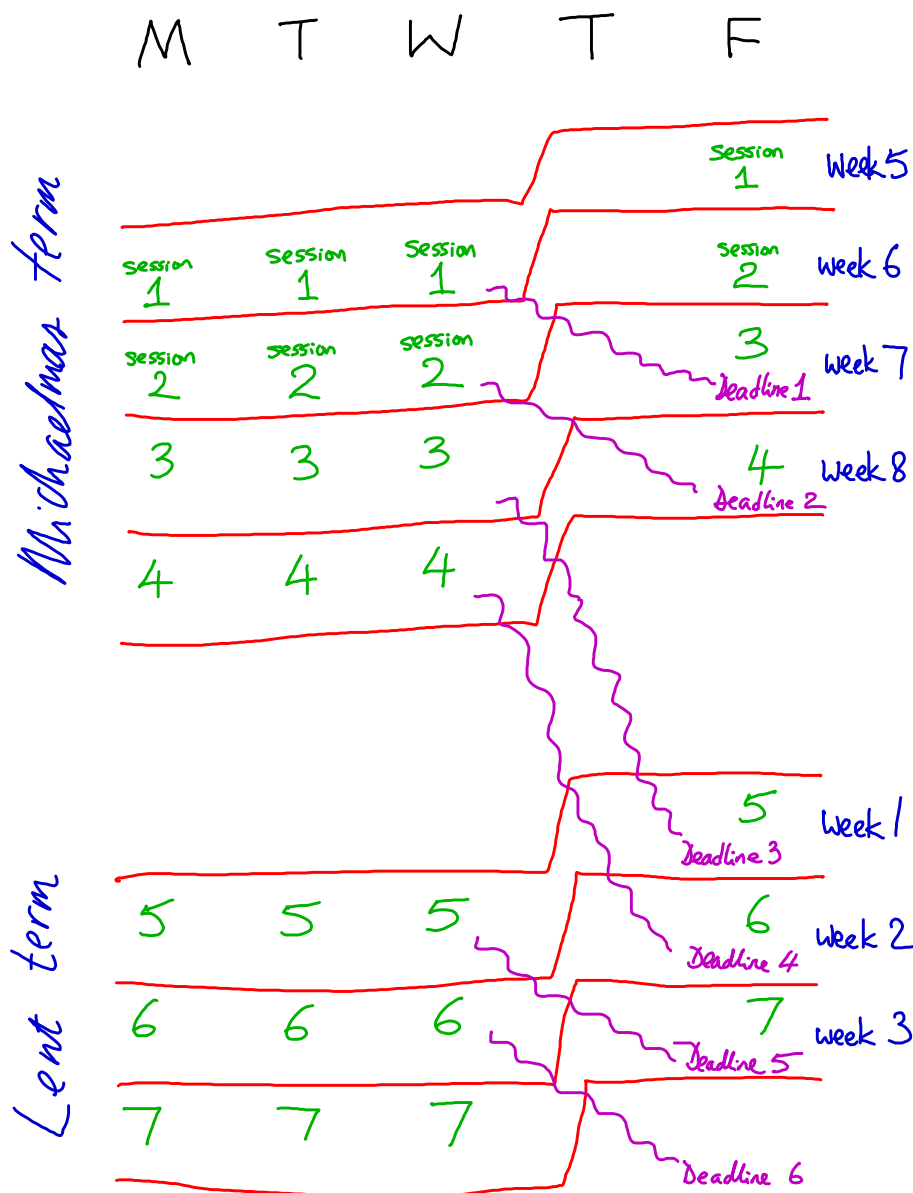 M T W T F
Michaelmas term
Session 1 Week 5
Session 1 Session 1 Session 1 Session 2 Week 6
Session 2 Session 2 Session 2 3 Week 7
Deadline 1
3 3 3 4 Week 8
Deadline 2
4 4 4
Lent term
5 Week 1
Deadline 3
5 5 5 6 Week 2
Deadline 4
6 6 6 7 Week 3
Deadline 5
7 7 7
Deadline 6